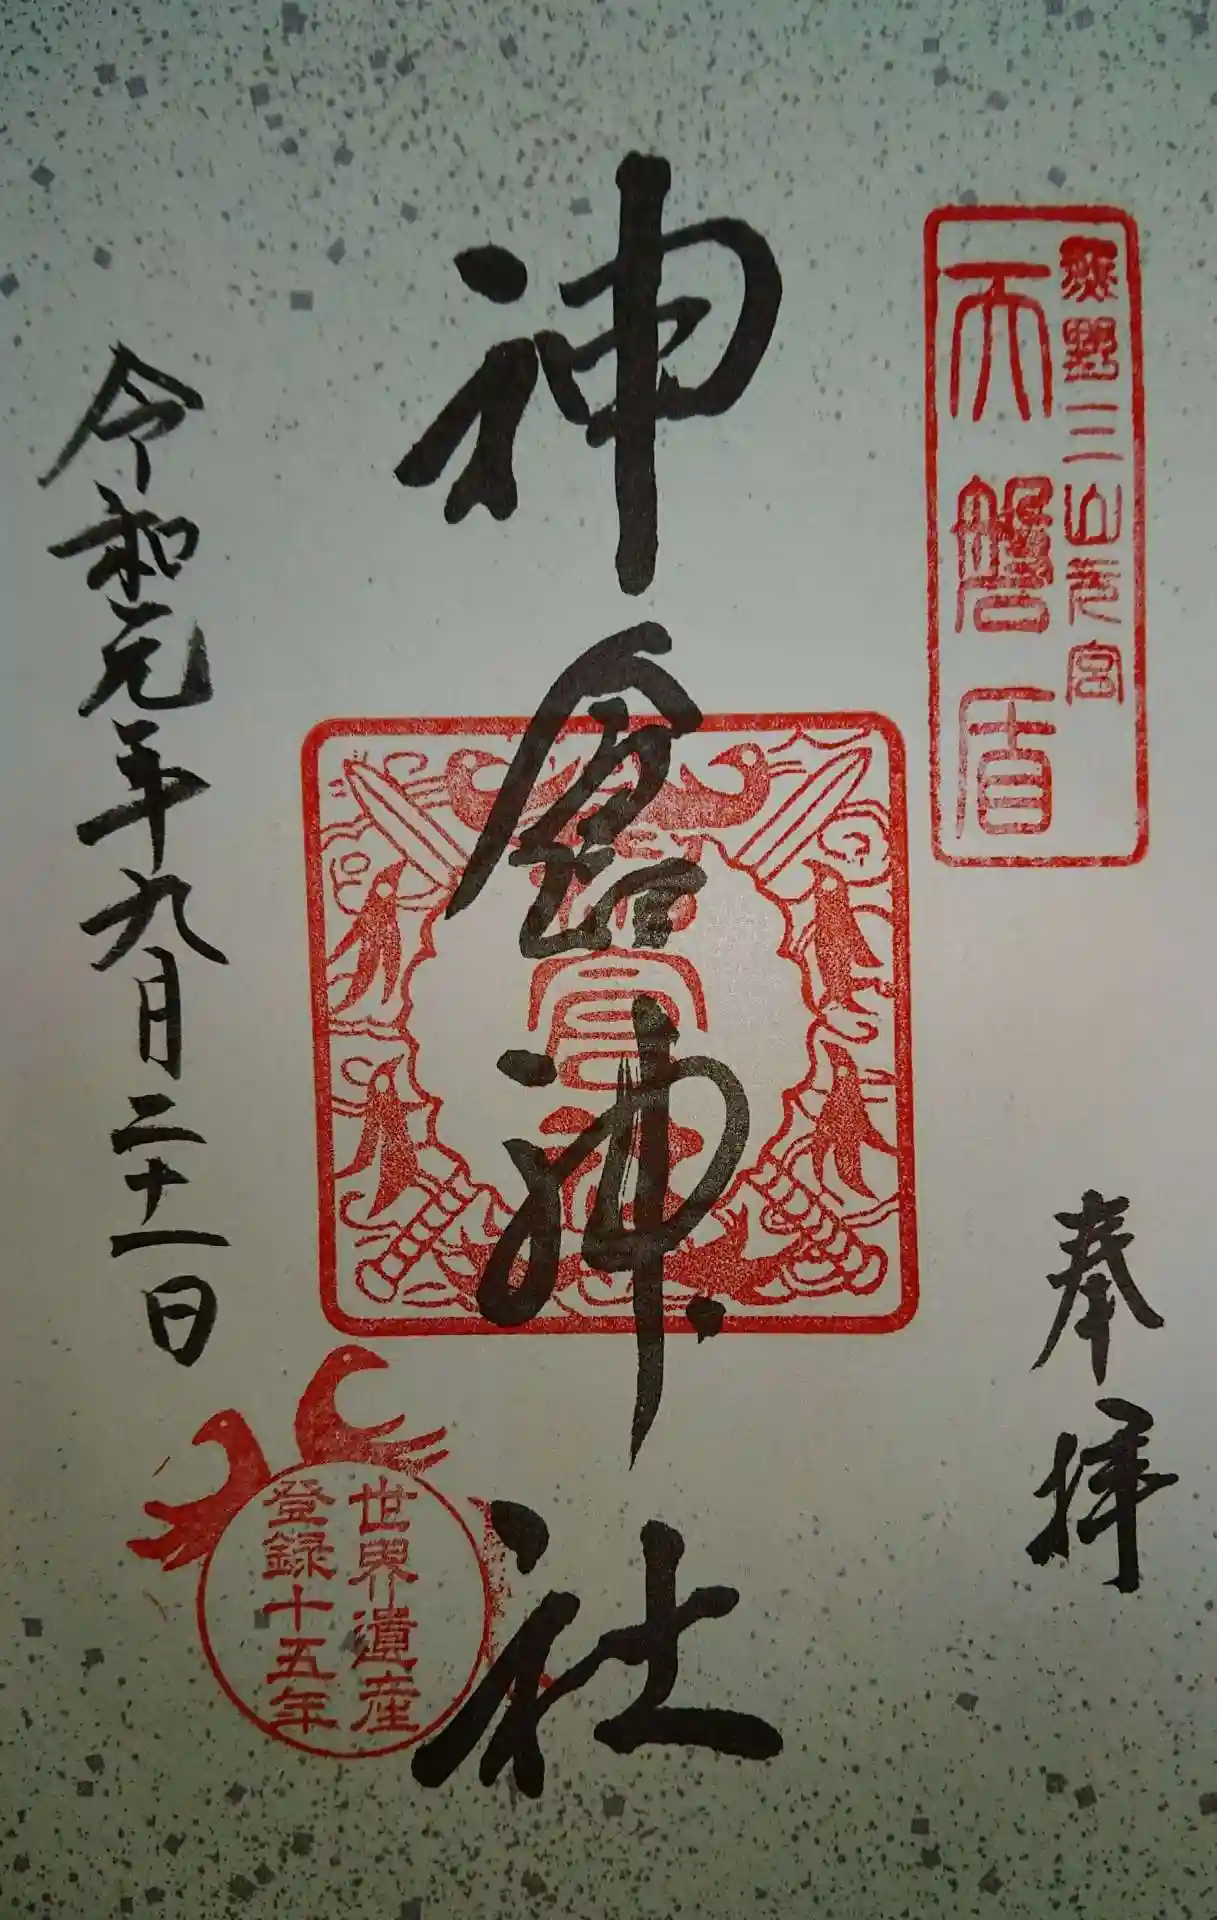 熊野三山元宮
天磐盾
奉拝
神倉神社
令和元年九月二十一日
世界遺産
登録十五年